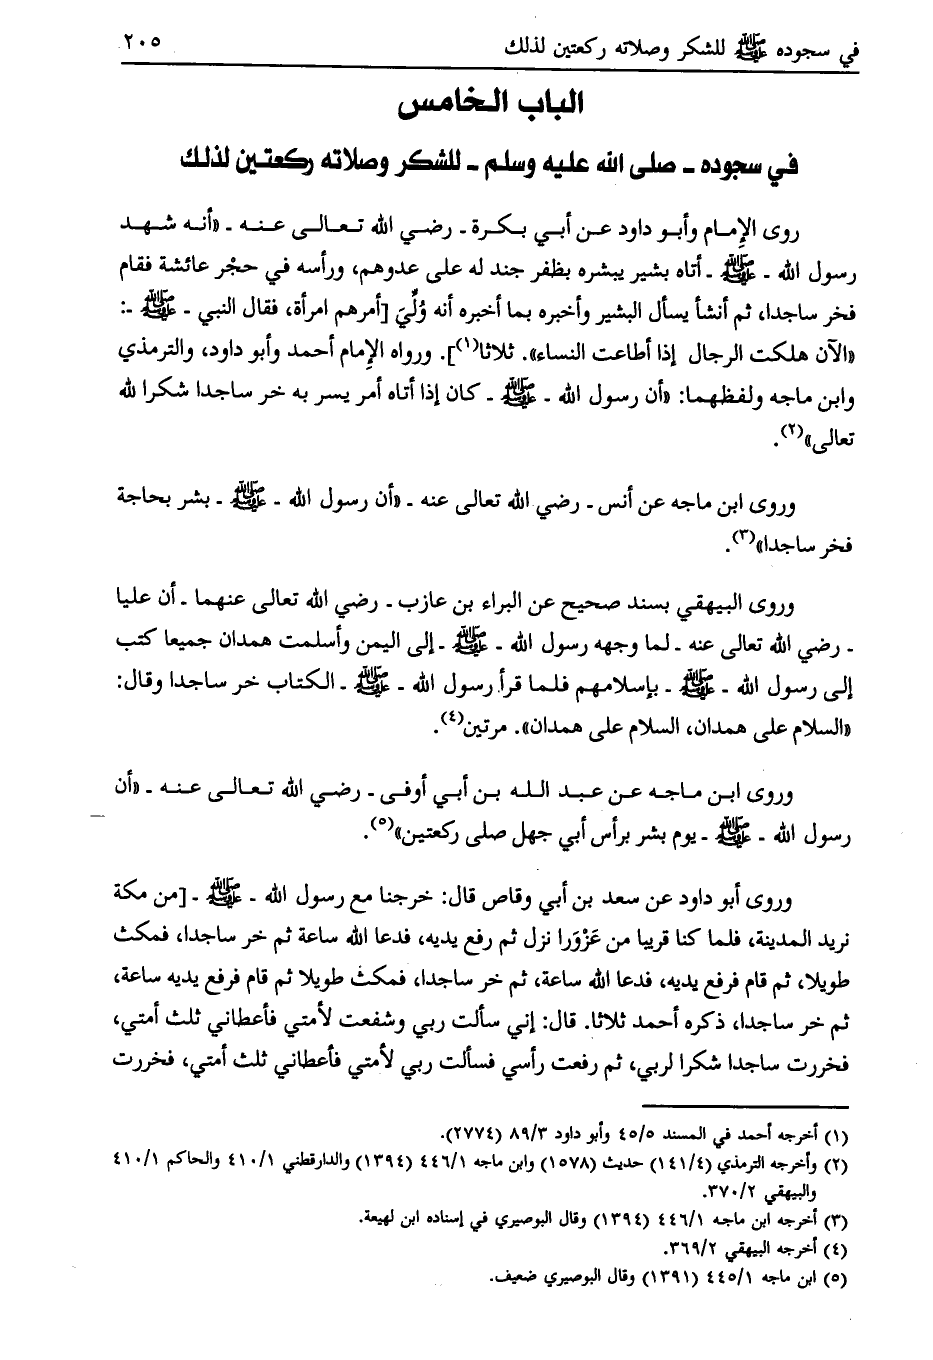 في سجوده ﷺ للشكر وصلاته ركعتين لذلك ٢٠٥
الباب الخامس
في سجوده ـ صلى الله عليه وسلم ـ للشكر وصلاته ركعتين لذلك
روى الإمام وأبو داود عن أبي بكرة ـ رضي الله تعالى عنه ـ «أنه شهد
رسول الله ـ ﷺ ـ أتاه بشير يبشره بظفر جند له على عدوهم، ورأسه في حجْر عائشة فقام
فخر ساجدا، ثم أنشأ يسأل البشير وأخبره بما أخبره أنه وُلِّيَ [أمرهم امرأة، فقال النبي ـ ﷺ ـ:
«الآن هلكت الرجال إذا أطاعت النساء». ثلاثا(١)]. ورواه الإمام أحمد وأبو داود، والترمذي
وابن ماجه ولفظهما: «أن رسول الله ـ ﷺ ـ كان إذا أتاه أمر يسر به خر ساجدا شكرا لله
تعالى»(٢).
وروى ابن ماجه عن أنس ـ رضي الله تعالى عنه ـ «أن رسول الله ـ ﷺ ـ بشر بحاجة
فخر ساجدا»(٣).
وروى البيهقي بسند صحيح عن البراء بن عازب ـ رضي الله تعالى عنهما ـ أن عليا
ـ رضي الله تعالى عنه ـ لما وجهه رسول الله ـ ﷺ ـ إلى اليمن وأسلمت همدان جميعا كتب
إلى رسول الله ـ ﷺ ـ بإسلامهم فلما قرأ رسول الله ـ ﷺ ـ الكتاب خر ساجدا وقال:
«السلام على همدان، السلام على همدان». مرتين(٤).
وروى ابن ماجه عن عبد الله بن أبي أوفى ـ رضي الله تعالى عنه ـ «أن
رسول الله ـ ﷺ ـ يوم بشر برأس أبي جهل صلى ركعتين»(٥).
وروى أبو داود عن سعد بن أبي وقاص قال: خرجنا مع رسول الله ـ ﷺ ـ [من مكة
نريد المدينة، فلما كنا قريبا من عَزْوَرا نزل ثم رفع يديه، فدعا الله ساعة ثم خر ساجدا، فمكث
طويلا، ثم قام فرفع يديه، فدعا الله ساعة، ثم خر ساجدا، فمكث طويلا ثم قام فرفع يديه ساعة،
ثم خر ساجدا، ذكره أحمد ثلاثا. قال: إني سألت ربي وشفعت لأمتي فأعطاني ثلث أمتي،
فخررت ساجدا شكرا لربي، ثم رفعت رأسي فسألت ربي لأمتي فأعطاني ثلث أمتي، فخررت
(١) أخرجه أحمد في المسند ٤٥/٥ وأبو داود ٨٩/٣ (٢٧٧٤).
(٢) وأخرجه الترمذي (١٤١/٤) حديث (١٥٧٨) وابن ماجه ٤٤٦/١ (١٣٩٤) والدارقطني ٤١٠/١ والحاكم ٤١٠/١
والبيهقي ٣٧٠/٢.
(٣) أخرجه ابن ماجه ٤٤٦/١ (١٣٩٤) وقال البوصيري في إسناده ابن لهيعة.
(٤) أخرجه البيهقي ٣٦٩/٢.
(٥) ابن ماجه ٤٤٥/١ (١٣٩١) وقال البوصيري ضعيف.